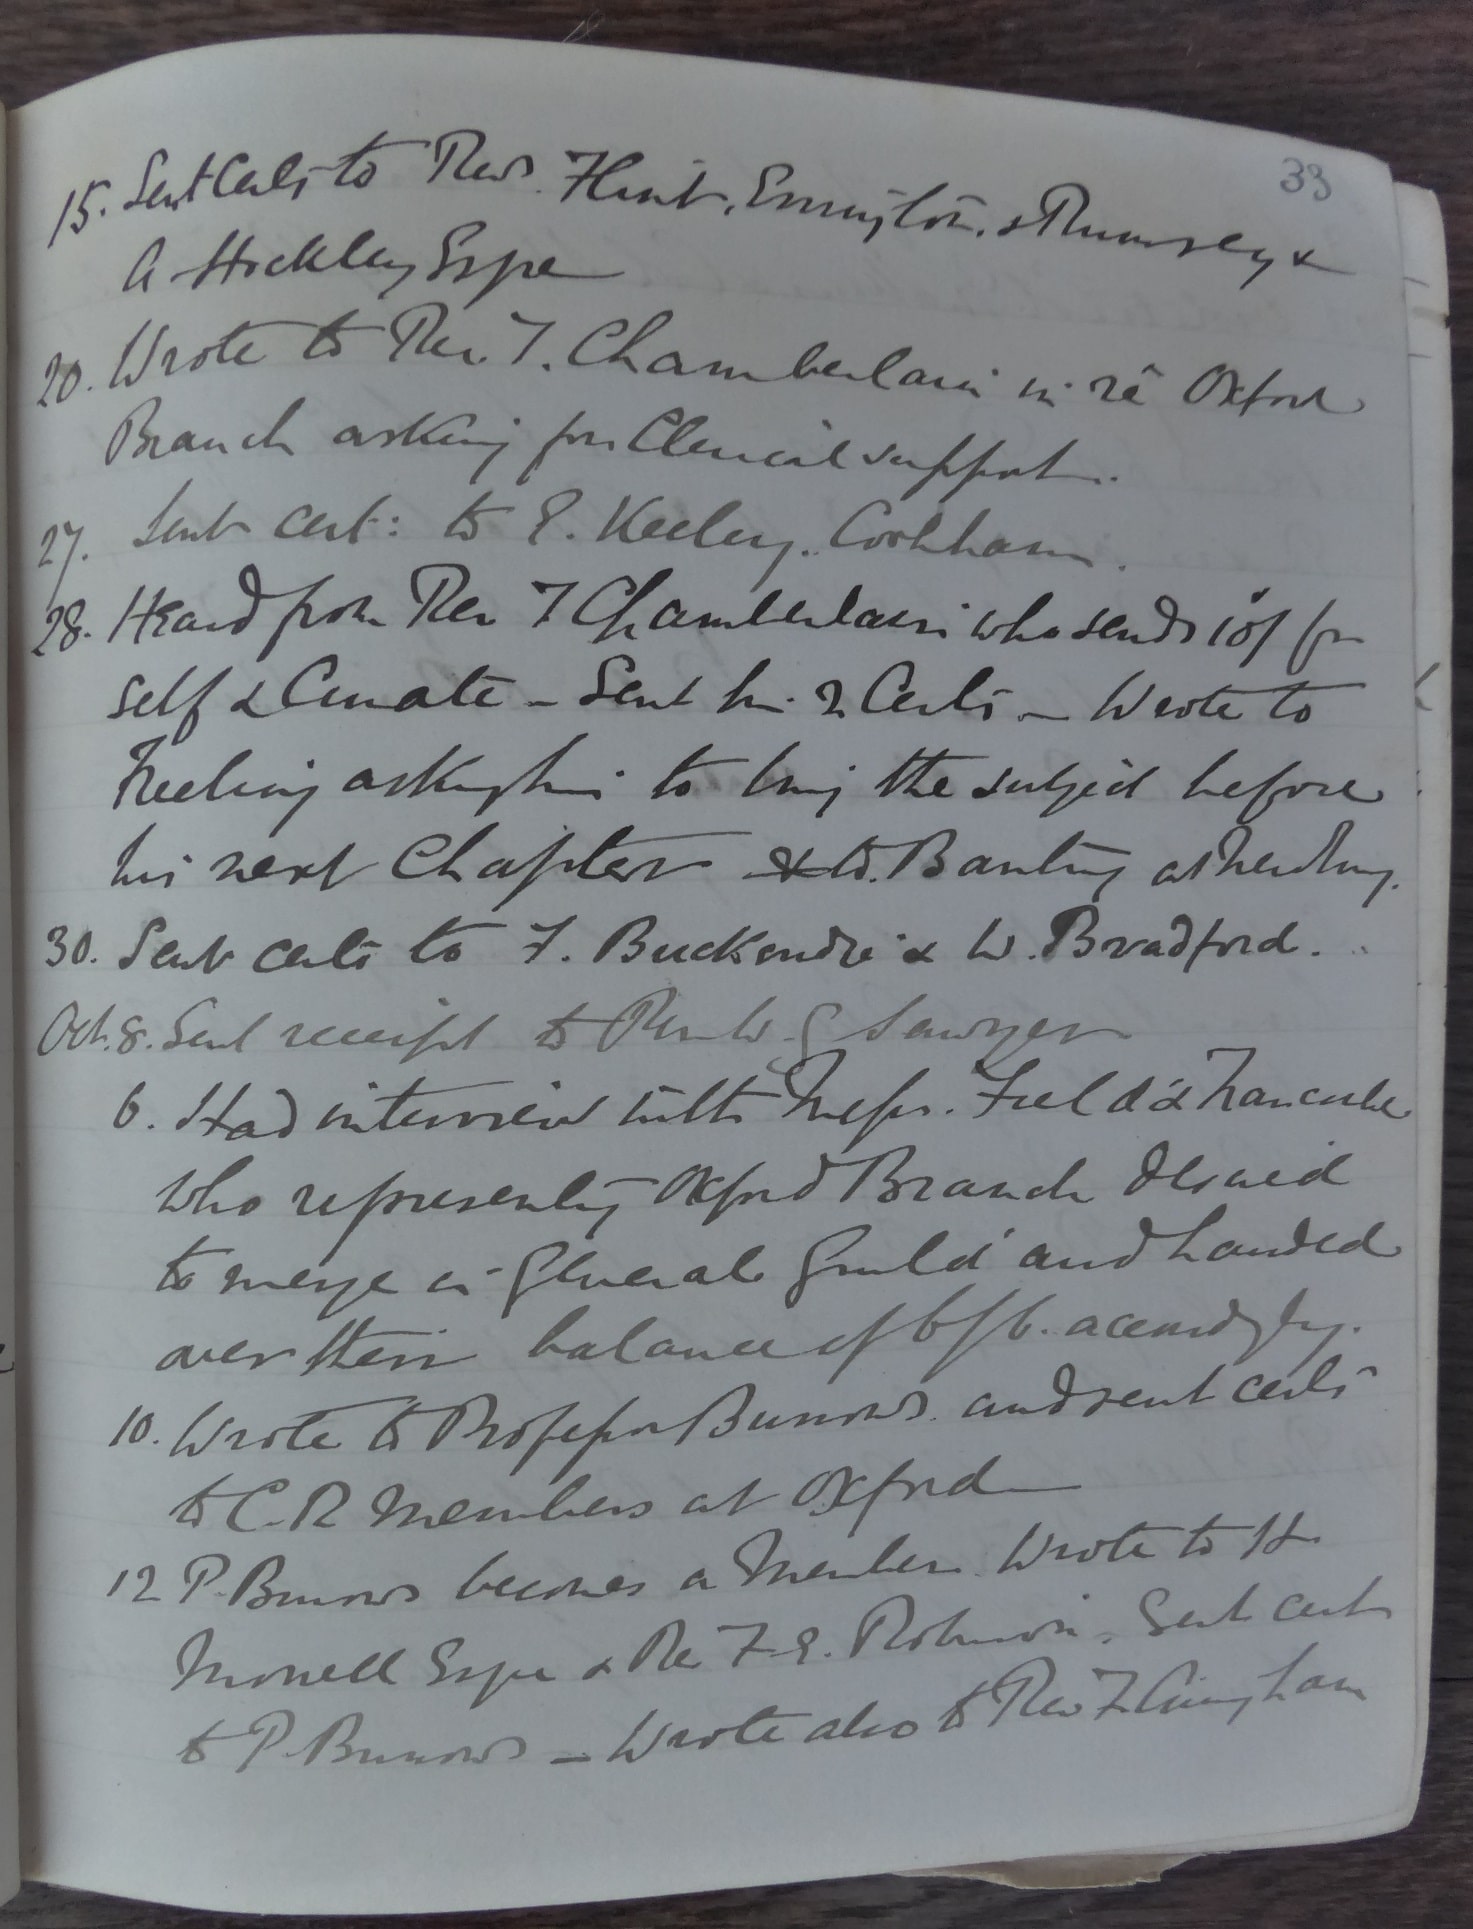 33
15. Sent Certs to Revs. Flint, Errington, & Rumsey &
A Hockley Esqre
20. Wrote to Rev. T. Chamberlain in re Oxford
Branch asking for Clerical support.
27. Sent cert: to E. Keeley. Cookham.
28. Heard from Rev T Chamberlain who sends 10/ for
self & Curate - Sent him 2 Certs - Wrote to
asking him to bring the subject before
his next Chapter & W. Banting at
30. Sent certs to F. Buckendre & W. Bradford.
Oct. 8. Sent receipt to Rev W G Sawyer
6. Had interview with Messrs. Field &
who representing Oxford Branch desired
to merge in General Guild and handed
over their balance of 6/6. accordingly.
10. Wrote to Professor Burrows. and sent certs
to C. R Members at Oxford
12 P. Burrows becomes a Member. Wrote to H
Morrell Esqre & Rev F. E. Robinson. Sent cert
to P. Burrows - Wrote also to Rev